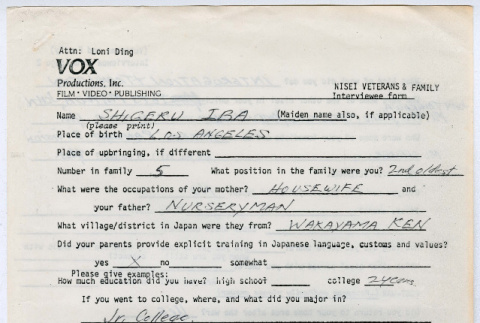 Attn: Loni Ding
VOX
Productions, Inc.
FILM · VIDEO · PUBLISHING
NISEI VETERANS & FAMILY
Interviewee form
Name SHIGERU IBA (Maiden name also, if applicable)
(please print)
Place of birth LOS ANGELES
Place of upbringing, if different
Number in family 5 What position in the family were you? 2nd oldest
What were the occupations of your mother? HOUSEWIFE and
your father? NURSERYMAN
What village/district in Japan were they from? WAKAYAMA KEN
Did your parents provide explicit training in Japanese language, customs and values?
yes X no somewhat
Please give examples:
How much education did you have? high school college 2
If you went to college, where, and what did you major in?
Jr. College